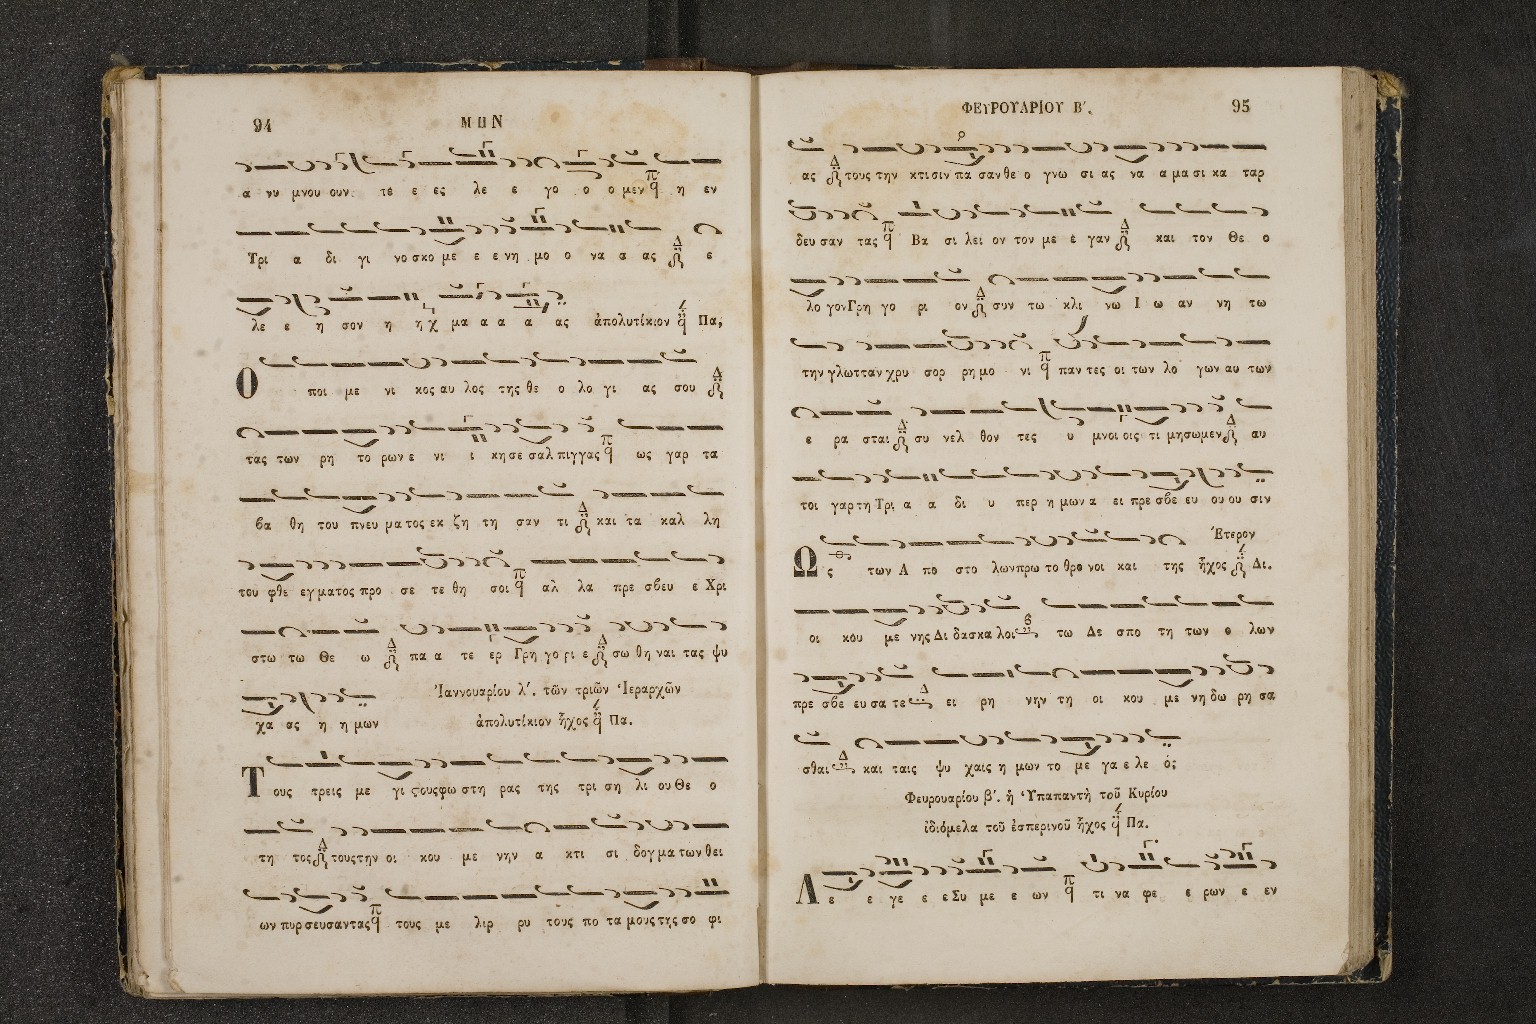 94 ΜΗΝ
α νυ μνου ουν τε ε ες λε ε γο ο ο μεν η εν
Τρι α δι γι νο σκο με ε ε νη μο ο να α ας ε
λε ε η σον η η χ μα α α α ας ἀπολυτίκιον Πα,
Ο ποι με νι κος αυ λος της θε ο λο γι ας σου
τας των ρη το ρων ε νι ι κη σε σαλ πιγγας ως γαρ τα
βα θη του πνευ μα τος εκ ζη τη σαν τι και τα καλ λη
του φθε εγ ματος προ σε τε θη σοι αλ λα πρε σβευ ε Χρι
στω τω Θε ω πα α τε ερ Γρη γο ρι ε σω θη ναι τας ψυ
χα ας η η μων
Ἰαννουαρίου λ΄. τῶν τριῶν Ἱεραρχῶν
ἀπολυτίκιον ἦχος Πα.
Τ ους τρεις με γι ςους φω στη ρας της τρι ση λι ου Θε ο
τη τος τους την οι κου με νην α κτι σι δογ μα των θει
ων πυρ σευσαντας τους με λιρ ρυ τους πο τα μους της σο φι
ΦΕΥΡΟΥΑΡΙΟΥ Β΄. 95
ας τους την κτισιν πα σαν θε ο γνω σι ας να α μα σι κα ταρ
δευ σαν τας Βα σι λει ον τον με ε γαν και τον Θε ο
λο γον Γρη γο ρι ον συν τω κλι νω Ι ω αν νη τω
την γλωτταν χρυ σορ ρη μο νι παν τες οι των λο γων αυ των
ε ρα σται συ νελ θον τες υ μνοι οις τι μησωμεν αυ
τοι γαρ τη Τρι α α δι υ περ η μων α ει πρε σβε ευ ου ου σιν
Ἕτερον
Ω ς των Α πο στο λων πρω το θρο νοι και της ἦχος Δι.
οι κου με νης Δι δασκα λοι τω Δε σπο τη των ο λων
πρε σβε ευ σα τε ει ρη νην τη οι κου με νη δω ρη σα
σθαι και ταις ψυ χαις η μων το με γα ε λε ος
Φευρουαρίου β΄. ἡ Ὑπαπαντὴ τοῦ Κυρίου
ἰδιόμελα τοῦ ἑσπερινοῦ ἦχος Πα.
Λ ε ε γε ε ε Συ με ε ων τι να φε ε ρων ε εν